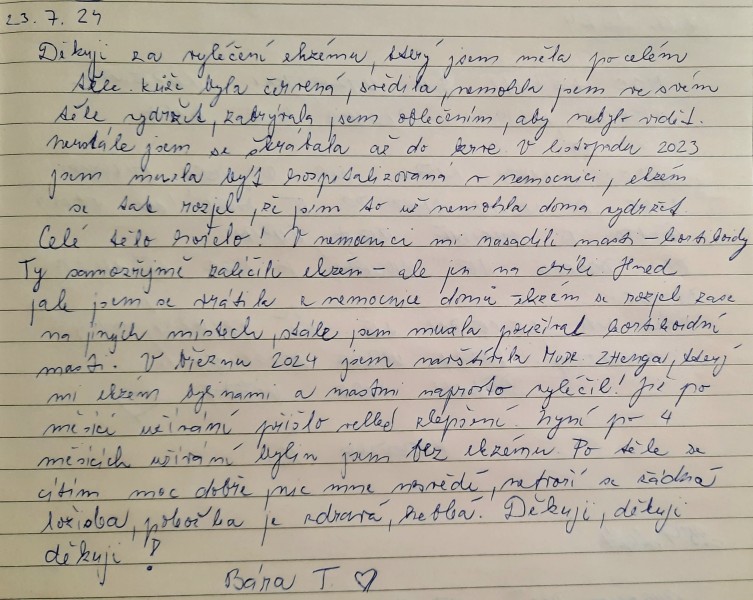 23. 7. 24
Děkuji za vyléčení ekzému, který jsem měla po celém
těle. kůže byla červená, svědila, nemohla jsem ve svém
těle vydržet, zakrývala jsem oblečením, aby nebylo vidět.
Neustále jsem se škrábala až do krve. V listopadu 2023
jsem musela být hospitalizovaná v nemocnici, ekzém
se tak rozjel, že jsem to už nemohla doma vydržet.
Celé tělo hořelo! V nemocnici mi nasadili masti - kortikoidy
Ty samozřejmě zaléčili ekzém - ale jen na chvíli. Hned
jak jsem se vrátila z nemocnice domů ekzém se rozjel zase
na jiných místech, stále jsem musela používat kortikoidní
masti. V březnu 2024 jsem navštívila MUDr. Zhenga, který
mi ekzém bylinami a mastmi naprosto vyléčil! Již po
měsíci užívání přišlo velké zlepšení. Nyní po 4
měsících užívání bylin jsem bez ekzému. Po těle se
cítím moc dobře, nic mne nesvědí, netvoří se žádná
ložiska, pokožka je zdravá, hebká. Děkuji, děkuji
děkuji!
Bára T. ♡